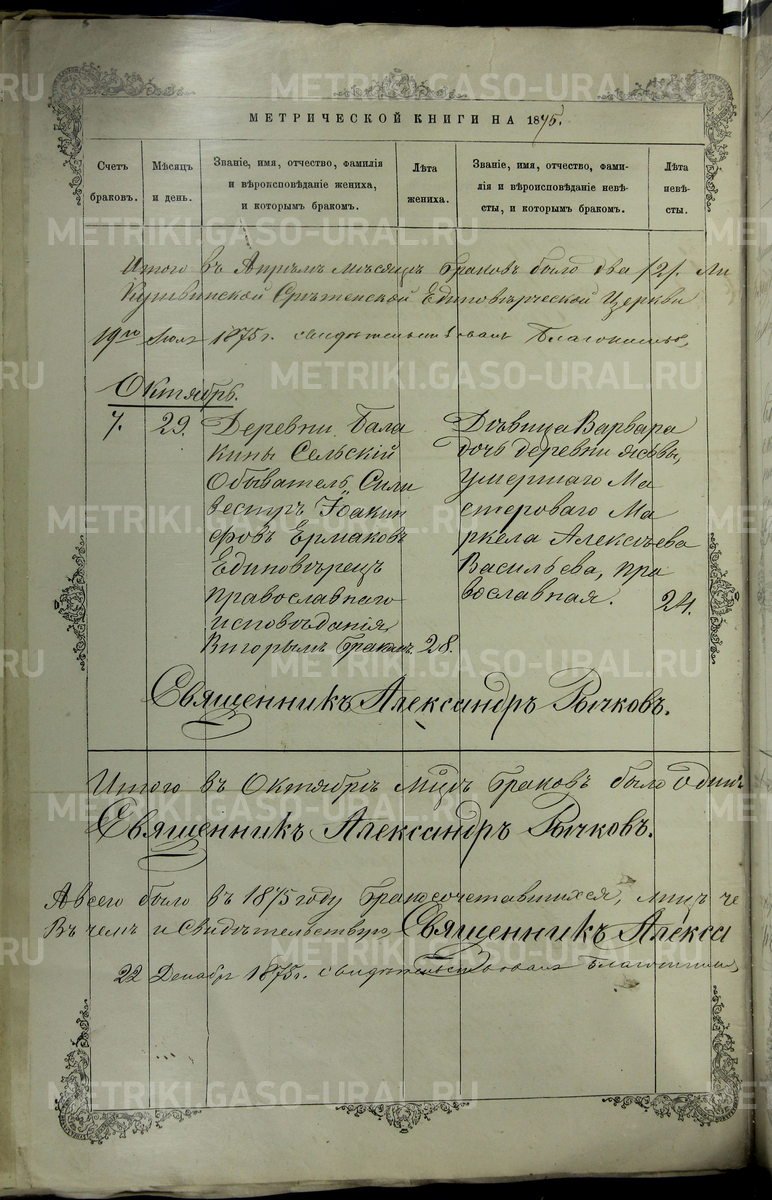 МЕТРИЧЕСКОЙ КНИГИ НА 1875.
Счетъ браковъ.
Мѣсяцъ и день.
Званіе, имя, отчество, фамилія
и вѣроисповѣданіе жениха,
и которымъ бракомъ.
Лѣта жениха.
Званіе, имя, отчество, фами-
лія и вѣроисповѣданіе невѣ-
сты, и которымъ бракомъ.
Лѣта невѣ-
сты.
Итого въ Апрѣлѣ мѣсяцѣ браковъ было два /2/.
Кушвинской Срѣтенской Единовѣрческой Церкви
19го Іюля 1875 г. свидѣтельствовалъ Благочинный
Октябрь.
7. 29. Деревни Бала
кины Сельскій
Обыватель Сили
вестръ Іоакин
фовъ Ермаковъ
Единовѣрецъ
православнаго
исповѣданія,
Вторымъ бракомъ. 28.
Дѣвица Варвара
дочь деревни
умершаго Ма
стероваго Ма
ркела Алексѣева
Васильева, пра
вославная. 24.
Священникъ Александръ Рычковъ.
Итого въ Октябрѣ мцѣ браковъ было Одинъ
Священникъ Александръ Рычковъ.
А всего было въ 1875 году бракосочетавшихся, лицъ че
Въ чемъ и Свидѣтельствую Священникъ Алекса
22 Декабр 1875 г. свидѣтельствовалъ Благочинный
METRIKI.GASO-URAL.RU